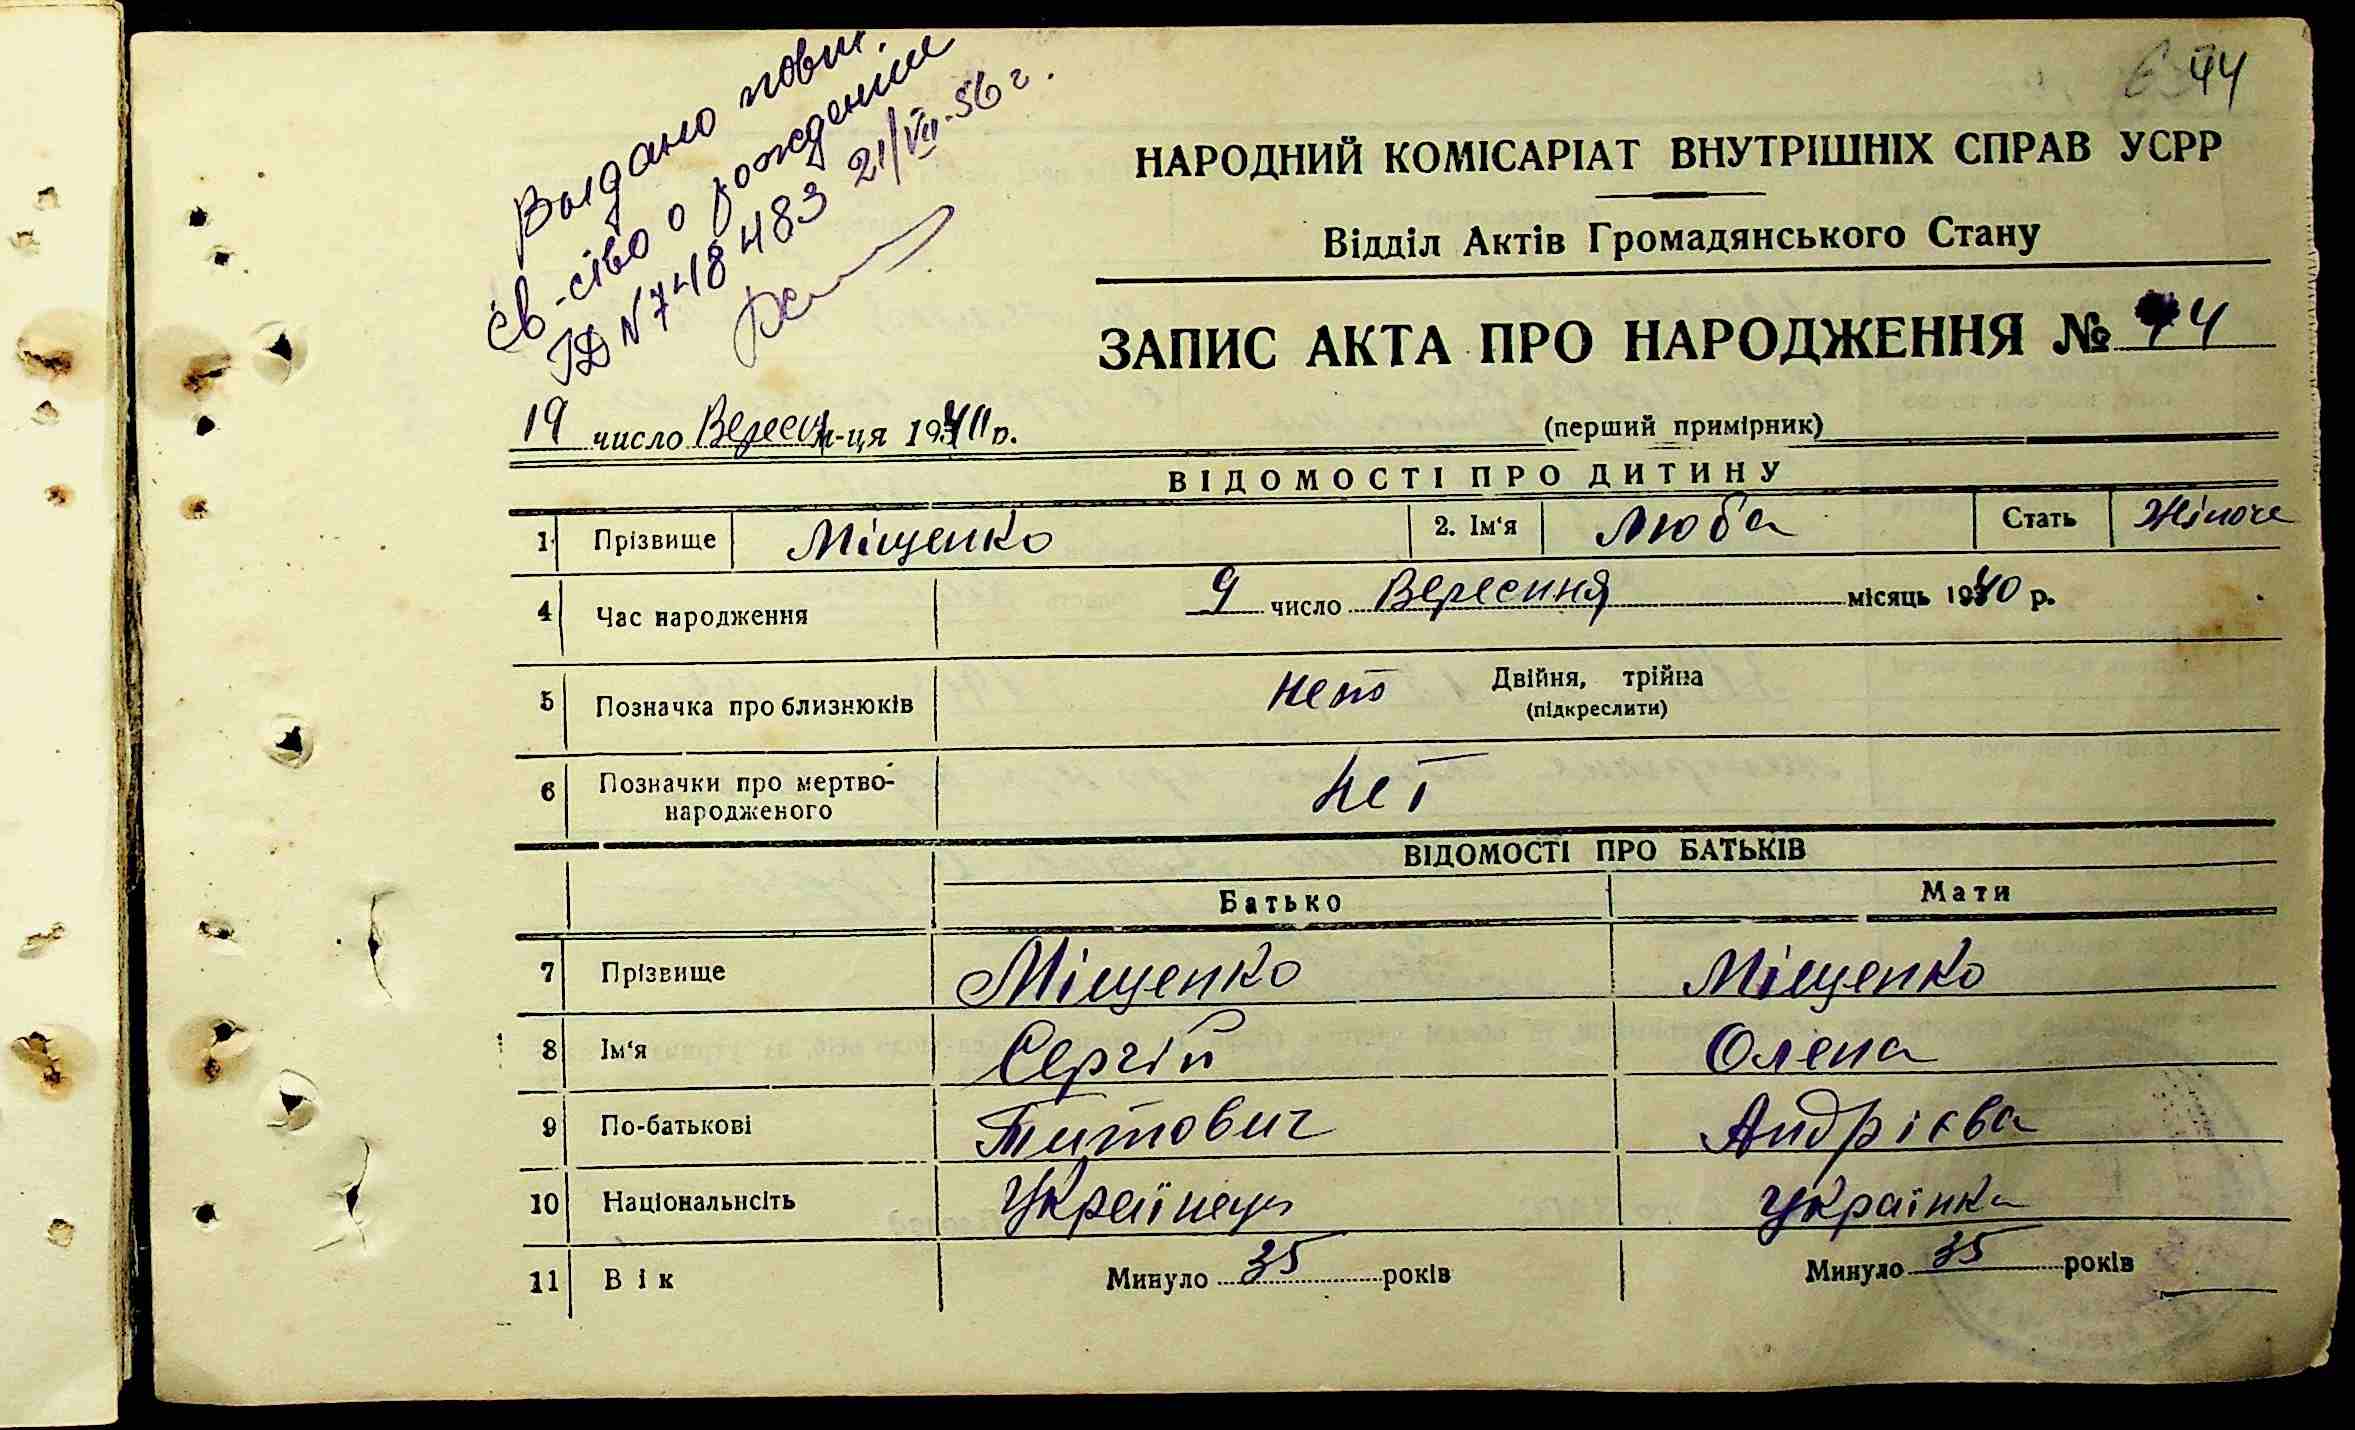 44
Выдано повт.
св-ство о рождении
ІД №748483 21/VII-56 г.
НАРОДНИЙ КОМІСАРІАТ ВНУТРІШНІХ СПРАВ УСРР
Відділ Актів Громадянського Стану
ЗАПИС АКТА ПРО НАРОДЖЕННЯ № 44
(перший примірник)
19 число Вересня м-ця 1940 р.
ВІДОМОСТІ ПРО ДИТИНУ
1 Прізвище Міщенко 2. Ім'я Люба Стать Жіноче
4 Час народження 9 число Вересиня місяць 1940 р.
5 Позначка про близнюків нет Двійня, трійна
(підкреслити)
6 Позначки про мертво-
народженого нет
ВІДОМОСТІ ПРО БАТЬКІВ
Батько Мати
7 Прізвище Міщенко Міщенко
8 Ім'я Сергій Олена
9 По-батькові Титович Андрієва
10 Національнсіть Українець Українка
11 Вік Минуло 35 років Минуло 35 років